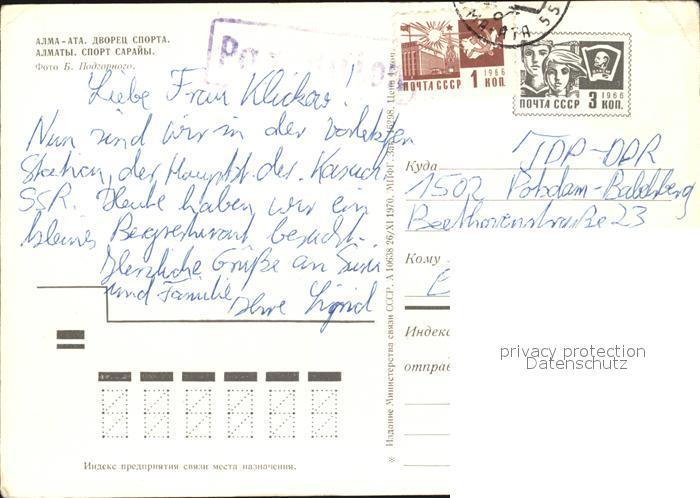 АЛМА-АТА. ДВОРЕЦ СПОРТА.
АЛМАТЫ. СПОРТ САРАЙЫ.
Фото Б. Подгорного.
Liebe Frau
Nun sind wir in der vorletzten
Station, der Hauptst. der Kasach.
SSR. Heute haben wir ein
kleines Bergrestaurant besucht.
Herzliche Grüße an Susi
und Familie
Ihre Sigrid
1966
ПОЧТА СССР 1 КОП.
1966
ПОЧТА СССР 3 КОП.
55
Куда
DDR
1502 Potsdam-Babelsberg
Beethovenstraße 23
Кому
Индекс
отправ
Издание Министерства связи СССР. А 10638 26/XI 1970. МПФГ. Зак. 16298. Цена 4 коп.
Индекс предприятия связи места назначения.
privacy protection
Datenschutz